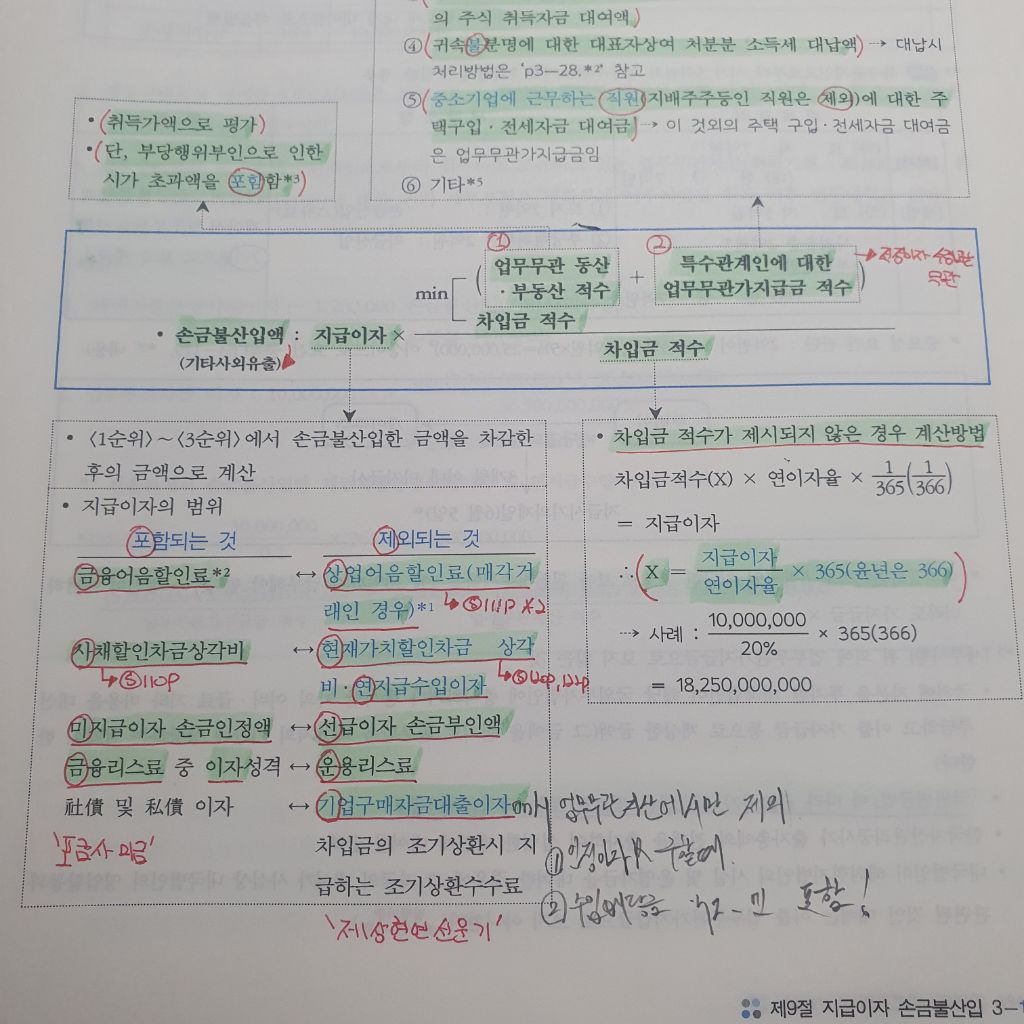 의 주식 취득자금 대여액)
④ (귀속불분명에 대한 대표자상여 처분분 소득세 대납액) → 대납시
처리방법은 'p3-28.*2' 참고
⑤ (중소기업에 근무하는 직원(지배주주등인 직원은 제외)에 대한 주
택구입·전세자금 대여금) → 이 것외의 주택 구입·전세자금 대여금
은 업무무관가지급금임
⑥ 기타*5
• (취득가액으로 평가)
• (단, 부당행위부인으로 인한
시가 초과액을 포함함*3)
① ②
업무무관 동산
·부동산 적수
+
특수관계인에 대한
업무무관가지급금 적수
min
차입금 적수
• 손금불산입액 : 지급이자 ×
(기타사외유출)
차입금 적수
• 〈1순위〉~〈3순위〉에서 손금불산입한 금액을 차감한
후의 금액으로 계산
• 지급이자의 범위
포함되는 것 ↔ 제외되는 것
금융어음할인료*2 ↔ 상업어음할인료(매각거
래인 경우)*1 → ⑤111P *2
사채할인차금상각비 ↔ 현재가치할인차금 상각
→ ⑤110P
비·연지급수입이자
미지급이자 손금인정액 ↔ 선급이자 손금부인액
금융리스료 중 이자성격 ↔ 운용리스료
社債 및 私債 이자 ↔ 기업구매자금대출이자
차입금의 조기상환시 지
급하는 조기상환수수료
'포금사미금'
'제상현연선운기'
• 차입금 적수가 제시되지 않은 경우 계산방법
차입금적수(X) × 연이자율 × 1/365(1/366)
= 지급이자
∴ (X = 지급이자/연이자율 × 365(윤년은 366))
→ 사례 : 10,000,000/20% × 365(366)
= 18,250,000,000
업무무관자산에서만 제외
① 인정이자 구할때
② 포함!
제9절 지급이자 손금불산입 3-1